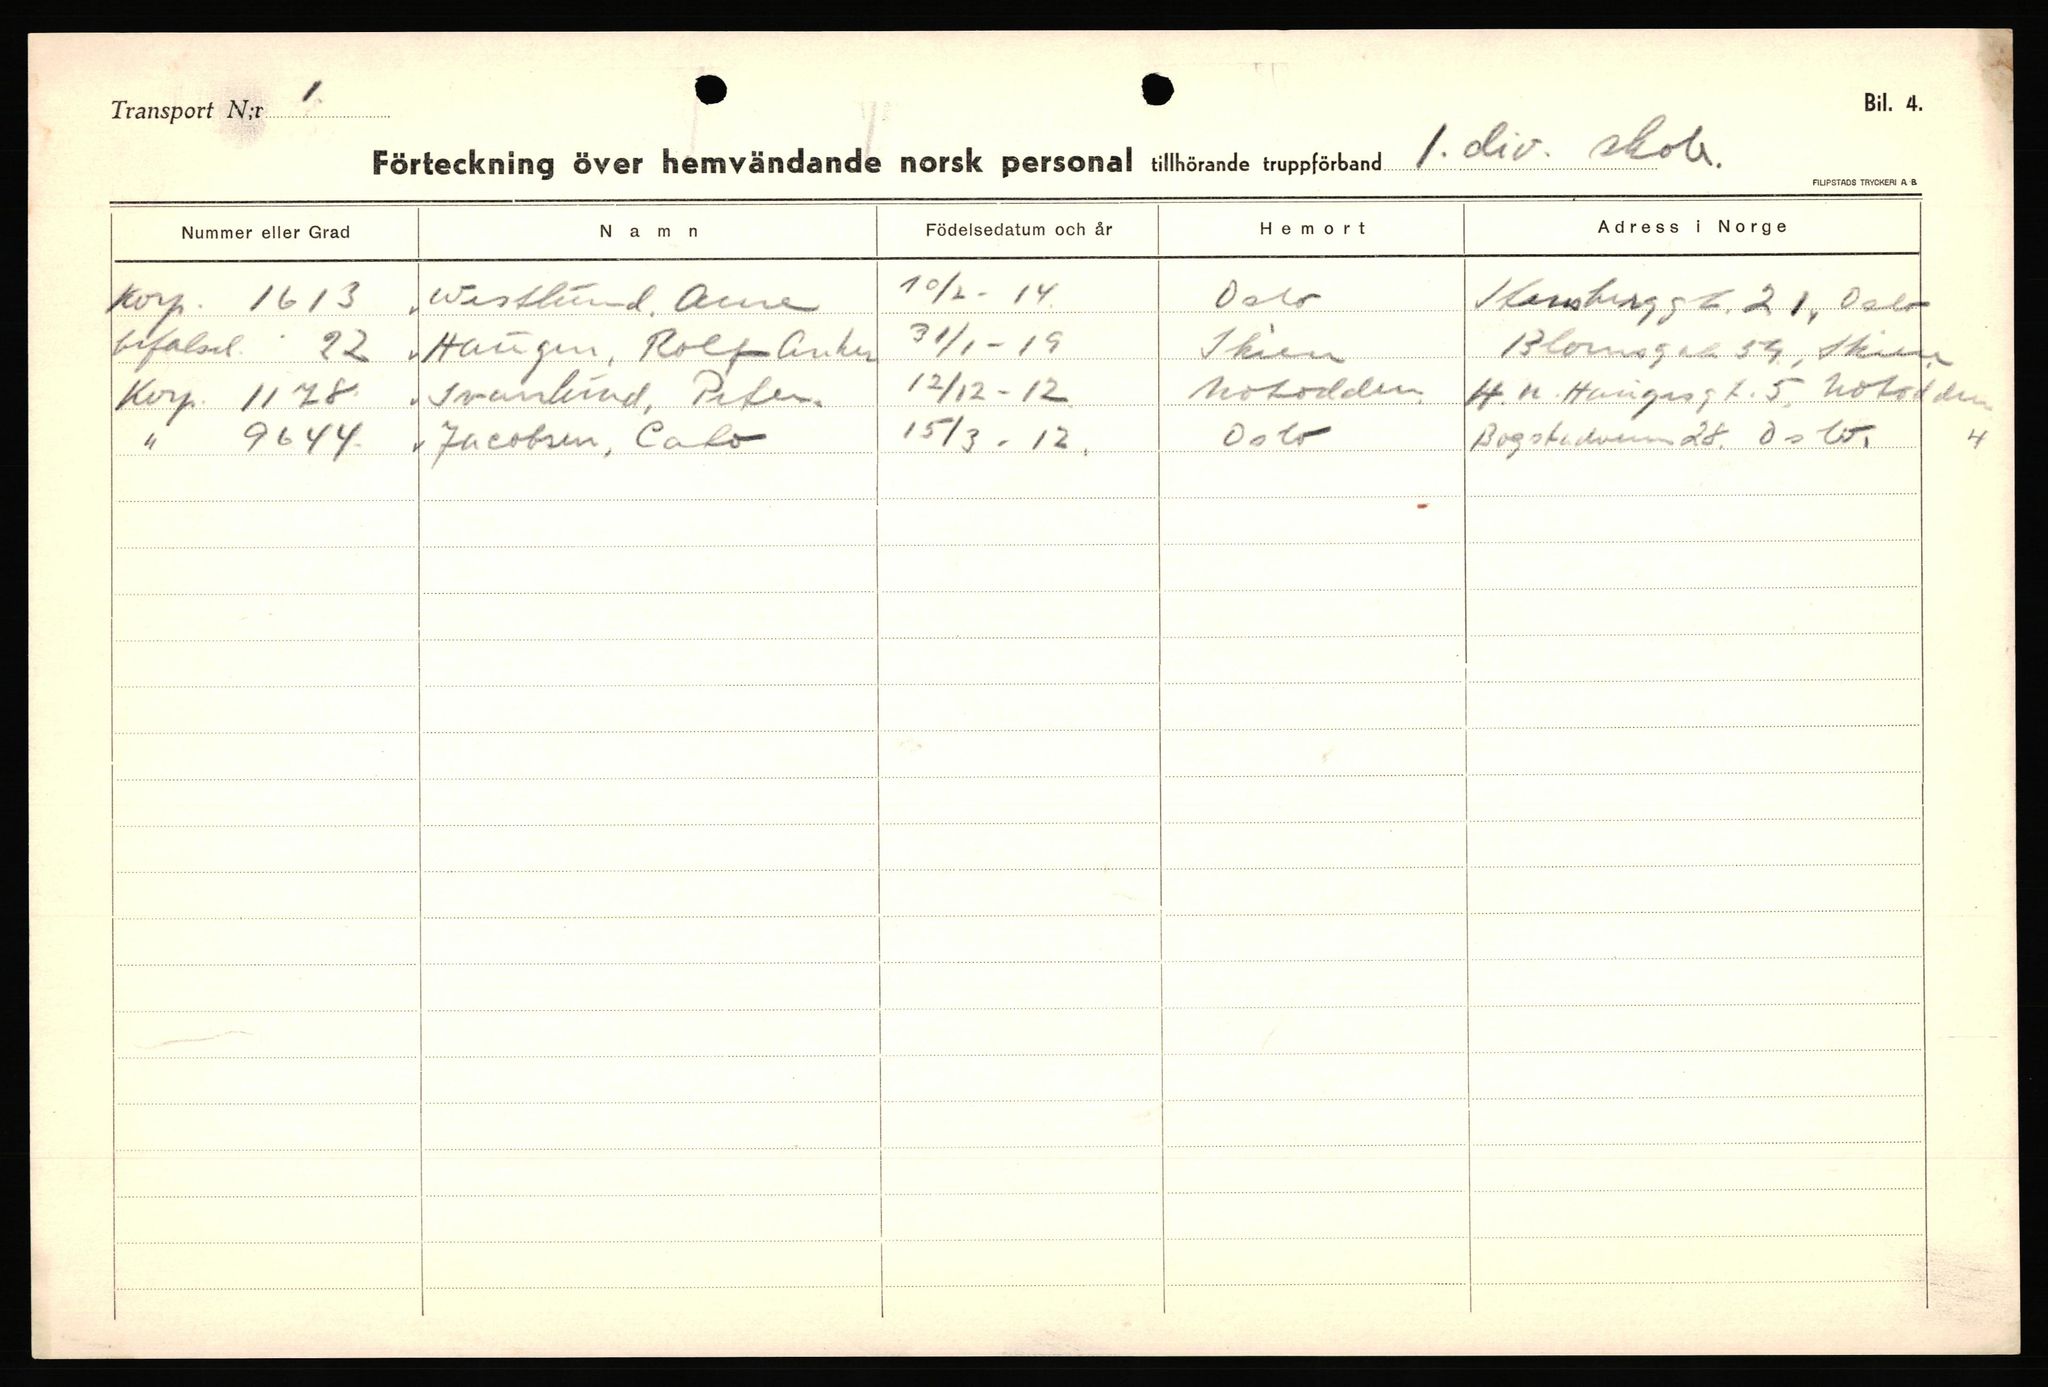 Transport N:r 1.
Bil. 4.
Förteckning över hemvändande norsk personal tillhörande truppförband 1. div. skole.
FILIPSTADS TRYCKERI A. B.
Nummer eller Grad Namn Födelsedatum och år Hemort Adress i Norge
Korp. 1613 Westlund, Arne 10/2 - 14. Oslo Stensberggt. 21, Oslo
befalsel. 22 Haugen, Rolf Anker 31/1 - 19 Skien Blomsgt. 59, Skien
Korp. 1178. Svanlund, Peter. 12/12 - 12 Notodden H. N. Haugesgt. 5, Notodden
" 9644. Jacobsen, Cato 15/3 - 12. Oslo Bogstadveien 28. Oslo. 4